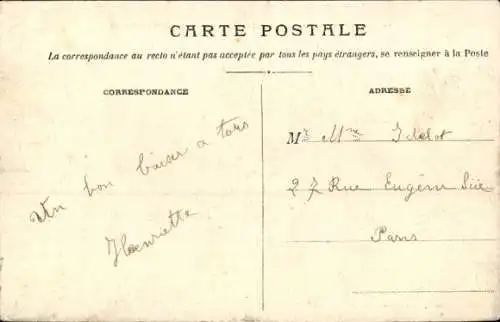 CARTE POSTALE
La correspondance au recto n'étant pas acceptée par tous les pays étrangers, se renseigner à la Poste
CORRESPONDANCE
Un bon baiser a tous
Henriette
ADRESSE
Mr Mme
27 Rue Eugèn Süe
Paris